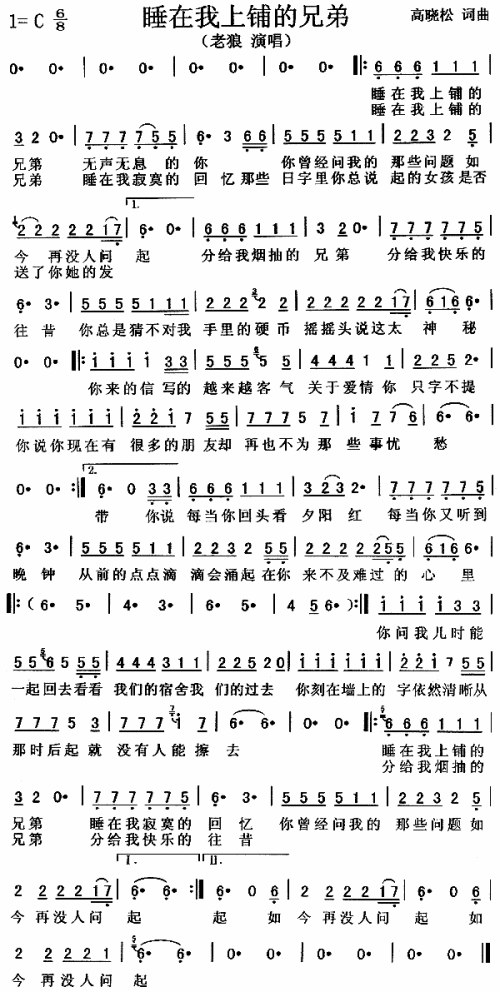 睡在我上铺的兄弟
1=C 6/8
高晓松 词曲
(老狼 演唱)
0· 0· | 0· 0· | 0· 0· | 0· 0· |: 6 6 6 1 1 1 |
睡在我上铺的
睡在我上铺的
3 2 0· | 7 7 7 7 5 5 | 6· 3 6 6 | 5 5 5 5 1 1 | 2 2 3 2 5 |
兄第 无声无息 的 你 你曾经问我的 那些问题 如
兄弟 睡在我寂寞的 回 忆那些 日字里你总说 起的女孩是否
1.
2 2 2 2 2 1 7 | 6· 0· | 6 6 6 1 1 1 | 3 2 0· | 7 7 7 7 7 5 |
今 再没人问 起 分给我烟抽的 兄第 分给我快乐的
送了你她的发
6· 3· | 5 5 5 5 1 1 1 | 2 2 2 2 2 | 2 2 2 2 2 1 7 | 6 1 6 6· |
往昔 你总是猜不对我 手里的硬币 摇摇头说这太 神秘
0· 0· |: 1 1 1 1 3 3 | 2 2 5 5 5 | 4 4 4 1 1 | 2 2 5 2· |
你来的信写的 越来越客气 关于爱情你 只字不提
1 1 1 1 1 1 | 2 2 1 7 5 5 | 7 7 7 5 7 | 1 7 7 6 | 6· 6· |
你说你现在有 很多的朋友却 再也不为那 些事忧 愁
2.
0· 0· :| 6· 0 3 3 | 6 6 6 1 1 1 | 3 2 3 2· | 7 7 7 7 7 5 |
带 你说 每当你回头看 夕阳红 每当你又听到
6· 3· | 5 5 5 5 1 1 | 2 2 2 2 5 5 | 2 2 2 2 2 5 5 | 6 1 6 6· |
晚钟 从前的点点滴 滴会涌起在你 来不及难过的 心里
|: ( 6· 5· | 4· 3· | 6· 5· | 4 5 6· ) :| 1 1 1 1 3 3 |
你问我儿时能
5 5 5 6 5 5 | 4 4 4 3 1 1 | 2 2 5 2 0 | 1 1 1 1 1 1 | 2 2 1 7 5 5 |
一起回去看看 我们的宿舍我 们的过去 你刻在墙上的 字依然清晰从
7 7 7 5 3 | 7 7 7 1 7 | 6· 6· | 0· 0· |: 6 6 6 1 1 1 |
那时后起就 没有人能擦 去 睡在我上铺的
分给我烟抽的
3 2 0· | 7 7 7 7 7 5 | 6· 3· | 5 5 5 5 1 1 | 2 2 3 2 5 |
兄弟 睡在我寂寞的 回忆 你曾经问我的 那些问题如
兄第 分给我快乐的 往昔
I. II.
2 2 2 2 1 7 | 6· 6· :| 6· 0 6 | 2 2 2 2 1 7 | 6· 0 6 |
今 再没人问 起 起 如 今 再没人问 起 如
2 2 2 2 1 | 6· 6· | 0· 0· | 0· 0· | 0· 0· :|
今 再没人问 起